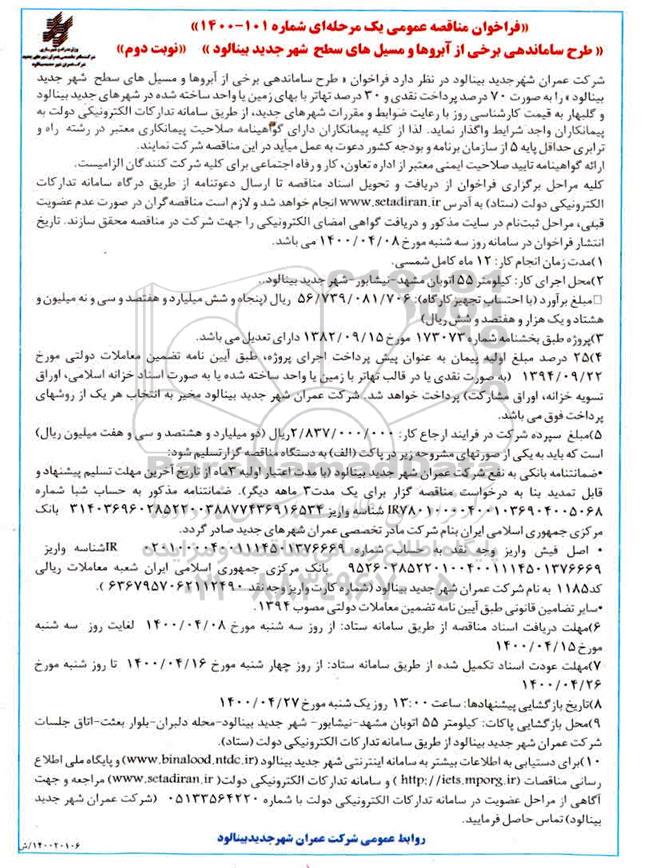 «فراخوان مناقصه عمومی یک مرحله‌ای شماره ۱۰۱-۱۴۰۰»
« طرح ساماندهی برخی از آبروها و مسیل های سطح شهر جدید بینالود » «نوبت دوم»
شرکت عمران شهرجدید بینالود در نظر دارد فراخوان « طرح ساماندهی برخی از آبروها و مسیل های سطح شهر جدید
بینالود » را به صورت ۷۰ درصد پرداخت نقدی و ۳۰ درصد تهاتر با بهای زمین یا واحد ساخته شده در شهرهای جدید بینالود
و گلبهار به قیمت کارشناسی روز با رعایت ضوابط و مقررات شهرهای جدید، از طریق سامانه تدارکات الکترونیکی دولت به
پیمانکاران واجد شرایط واگذار نماید. لذا از کلیه پیمانکاران دارای گواهینامه صلاحیت پیمانکاری معتبر در رشته راه و
ترابری حداقل پایه ۵ از سازمان برنامه و بودجه کشور دعوت به عمل میآید در این مناقصه شرکت نمایند.
ارائه گواهینامه تایید صلاحیت ایمنی معتبر از اداره تعاون، کار و رفاه اجتماعی برای کلیه شرکت کنندگان الزامیست.
کلیه مراحل برگزاری فراخوان از دریافت و تحویل اسناد مناقصه تا ارسال دعوتنامه از طریق درگاه سامانه تدارکات
الکترونیکی دولت (ستاد) به آدرس www.setadiran.ir انجام خواهد شد و لازم است مناقصه گران در صورت عدم عضویت
قبلی، مراحل ثبت‌نام در سایت مذکور و دریافت گواهی امضای الکترونیکی را جهت شرکت در مناقصه محقق سازند. تاریخ
انتشار فراخوان در سامانه روز سه شنبه مورخ ۱۴۰۰/۰۴/۰۸ می باشد.
۱)مدت زمان انجام کار: ۱۲ ماه کامل شمسی.
۲)محل اجرای کار: کیلومتر ۵۵ اتوبان مشهد-نیشابور-شهر جدید بینالود..
□مبلغ برآورد (با احتساب تجهیز کارگاه): ۵۶/۷۳۹/۰۸۱/۷۰۶ ریال (پنجاه و شش میلیارد و هفتصد و سی و نه میلیون و
هشتاد و یک هزار و هفتصد و شش ریال)
۳)پروژه طبق بخشنامه شماره ۱۷۳۰۷۳ مورخ ۱۳۸۲/۰۹/۱۵ دارای تعدیل می باشد.
۴)۲۵ درصد مبلغ اولیه پیمان به عنوان پیش پرداخت اجرای پروژه، طبق آیین نامه تضمین معاملات دولتی مورخ
۱۳۹۴/۰۹/۲۲ (به صورت نقدی یا در قالب تهاتر با زمین یا واحد ساخته شده یا به صورت اسناد خزانه اسلامی، اوراق
تسویه خزانه، اوراق مشارکت) پرداخت خواهد شد. شرکت عمران شهر جدید بینالود مخیر به انتخاب هر یک از روشهای
پرداخت فوق می باشد.
۵)مبلغ سپرده شرکت در فرایند ارجاع کار: ۲/۸۳۷/۰۰۰/۰۰۰ریال (دو میلیارد و هشتصد و سی و هفت میلیون ریال)
است که باید به یکی از صورتهای مشروحه زیر در پاکت (الف) به دستگاه مناقصه گزار تسلیم شود:
•ضمانتنامه بانکی به نفع شرکت عمران شهر جدید بینالود (با مدت اعتبار اولیه ۳ماه از تاریخ آخرین مهلت تسلیم پیشنهاد و
قابل تمدید بنا به درخواست مناقصه گزار برای یک مدت۳ ماهه دیگر). ضمانتنامه مذکور به حساب شبا شماره
IR۷۸۰۱۰۰۰۰۴۰۰۱۰۳۶۹۰۴۰۰۵۰۶۸ شناسه واریز ۳۱۴۰۳۶۹۶۰۲۸۵۲۲۰۰۳۸۸۷۷۴۳۶۹۱۶۵۳۴ بانک
مرکزی جمهوری اسلامی ایران بنام شرکت مادر تخصصی عمران شهرهای جدید صادر گردد.
• اصل فیش واریز وجه نقد به حساب شماره IR۰۲۱۰۱۰۰۰۰۴۰۰۱۱۱۴۵۰۱۳۷۶۶۶۹شناسه واریز
۹۵۲۶۰۲۸۵۲۲۰۱۰۰۴۰۰۱۱۱۴۵۰۱۳۷۶۶۶۹ بانک مرکزی جمهوری اسلامی ایران شعبه معاملات ریالی
کد۱۱۸۵ به نام شرکت عمران شهر جدید بینالود (شماره کارت واریز وجه نقد ۶۳۶۷۹۵۷۰۶۲۱۱۲۴۹۰ ).
•سایر تضامین قانونی طبق آیین نامه تضمین معاملات دولتی مصوب ۱۳۹۴.
۶)مهلت دریافت اسناد مناقصه از طریق سامانه ستاد: از روز سه شنبه مورخ ۱۴۰۰/۰۴/۰۸ لغایت روز سه شنبه
مورخ ۱۴۰۰/۰۴/۱۵
۷)مهلت عودت اسناد تکمیل شده از طریق سامانه ستاد: از روز چهار شنبه مورخ ۱۴۰۰/۰۴/۱۶ تا روز شنبه مورخ
۱۴۰۰/۰۴/۲۶
۸)تاریخ بازگشایی پیشنهادها: ساعت ۱۳:۰۰ روز یک شنبه مورخ ۱۴۰۰/۰۴/۲۷
۹)محل بازگشایی پاکات: کیلومتر ۵۵ اتوبان مشهد-نیشابور- شهر جدید بینالود-محله دلبران-بلوار بعثت-اتاق جلسات
شرکت عمران شهر جدید بینالود از طریق سامانه تدارکات الکترونیکی دولت (ستاد).
۱۰)برای دستیابی به اطلاعات بیشتر به سامانه اینترنتی شهر جدید بینالود (www.binalood.ntdc.ir) و پایگاه ملی اطلاع
رسانی مناقصات (http://iets.mporg.ir ) و سامانه تدارکات الکترونیکی دولت( www.setadiran.ir) مراجعه و جهت
آگاهی از مراحل عضویت در سامانه تدارکات الکترونیکی دولت با شماره ۰۵۱۳۳۵۶۴۲۲۰ (شرکت عمران شهر جدید
بینالود) تماس حاصل فرمایید.
روابط عمومی شرکت عمران شهرجدیدبینالود
۱۴۰۰۲۰۱۰۶/ش